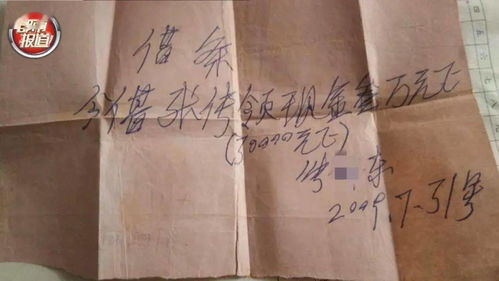 报道
借条
今借张传领现金叁万元正
(30000元正)
东
2009.7.31号